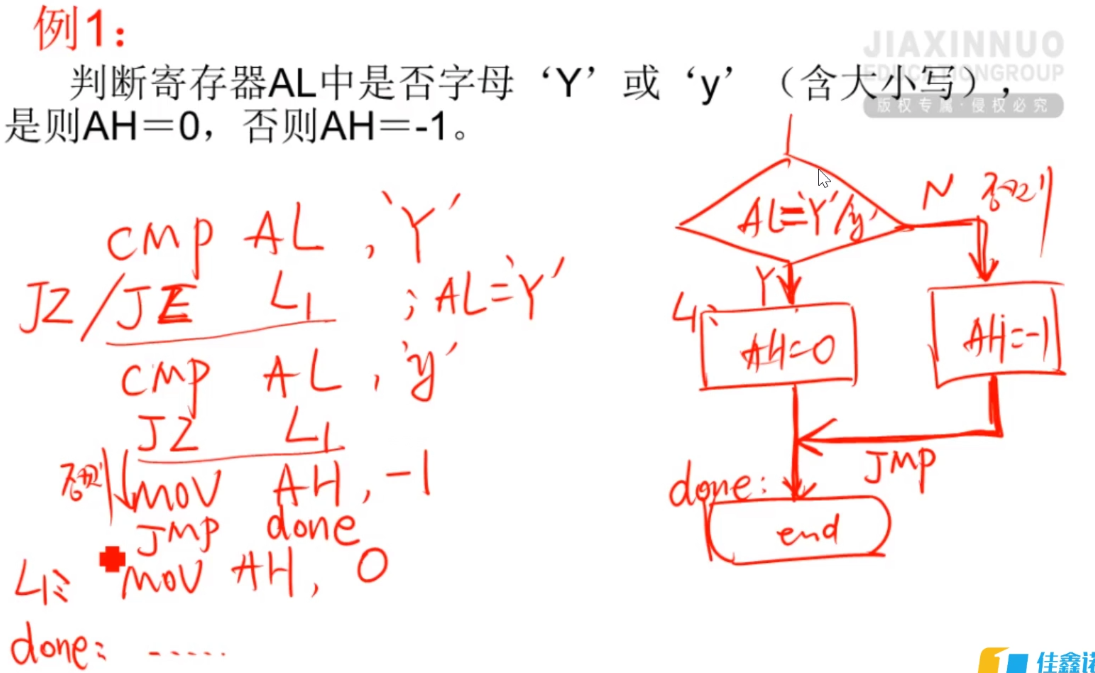 例1：
判断寄存器AL中是否字母‘Y’或‘y’（含大小写），
是则AH＝0，否则AH＝-1。
JIAXINNUO
EDUCATIONGROUP
版权专属·侵权必究
CMP AL , 'Y'
JZ / JE L1 ; AL='Y'
CMP AL , 'y'
JZ L1
否则 MOV AH , -1
JMP done
L1: MOV AH, 0
done: .....
AL='Y'/'y'
N 否则
Y
L1:
AH=0
AH=-1
JMP
done:
end
佳鑫诺